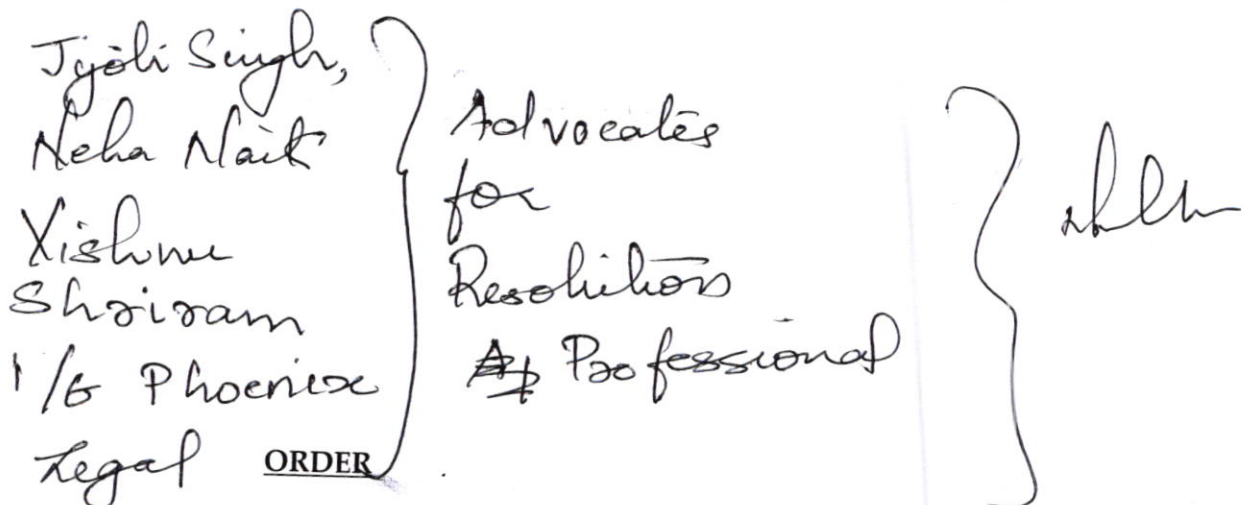 Jyoti Singh,
Neha Naik
Vishnu
Shriram
i/b Phoenix
Legal
Advocates
for
Resolution
Professional
ORDER